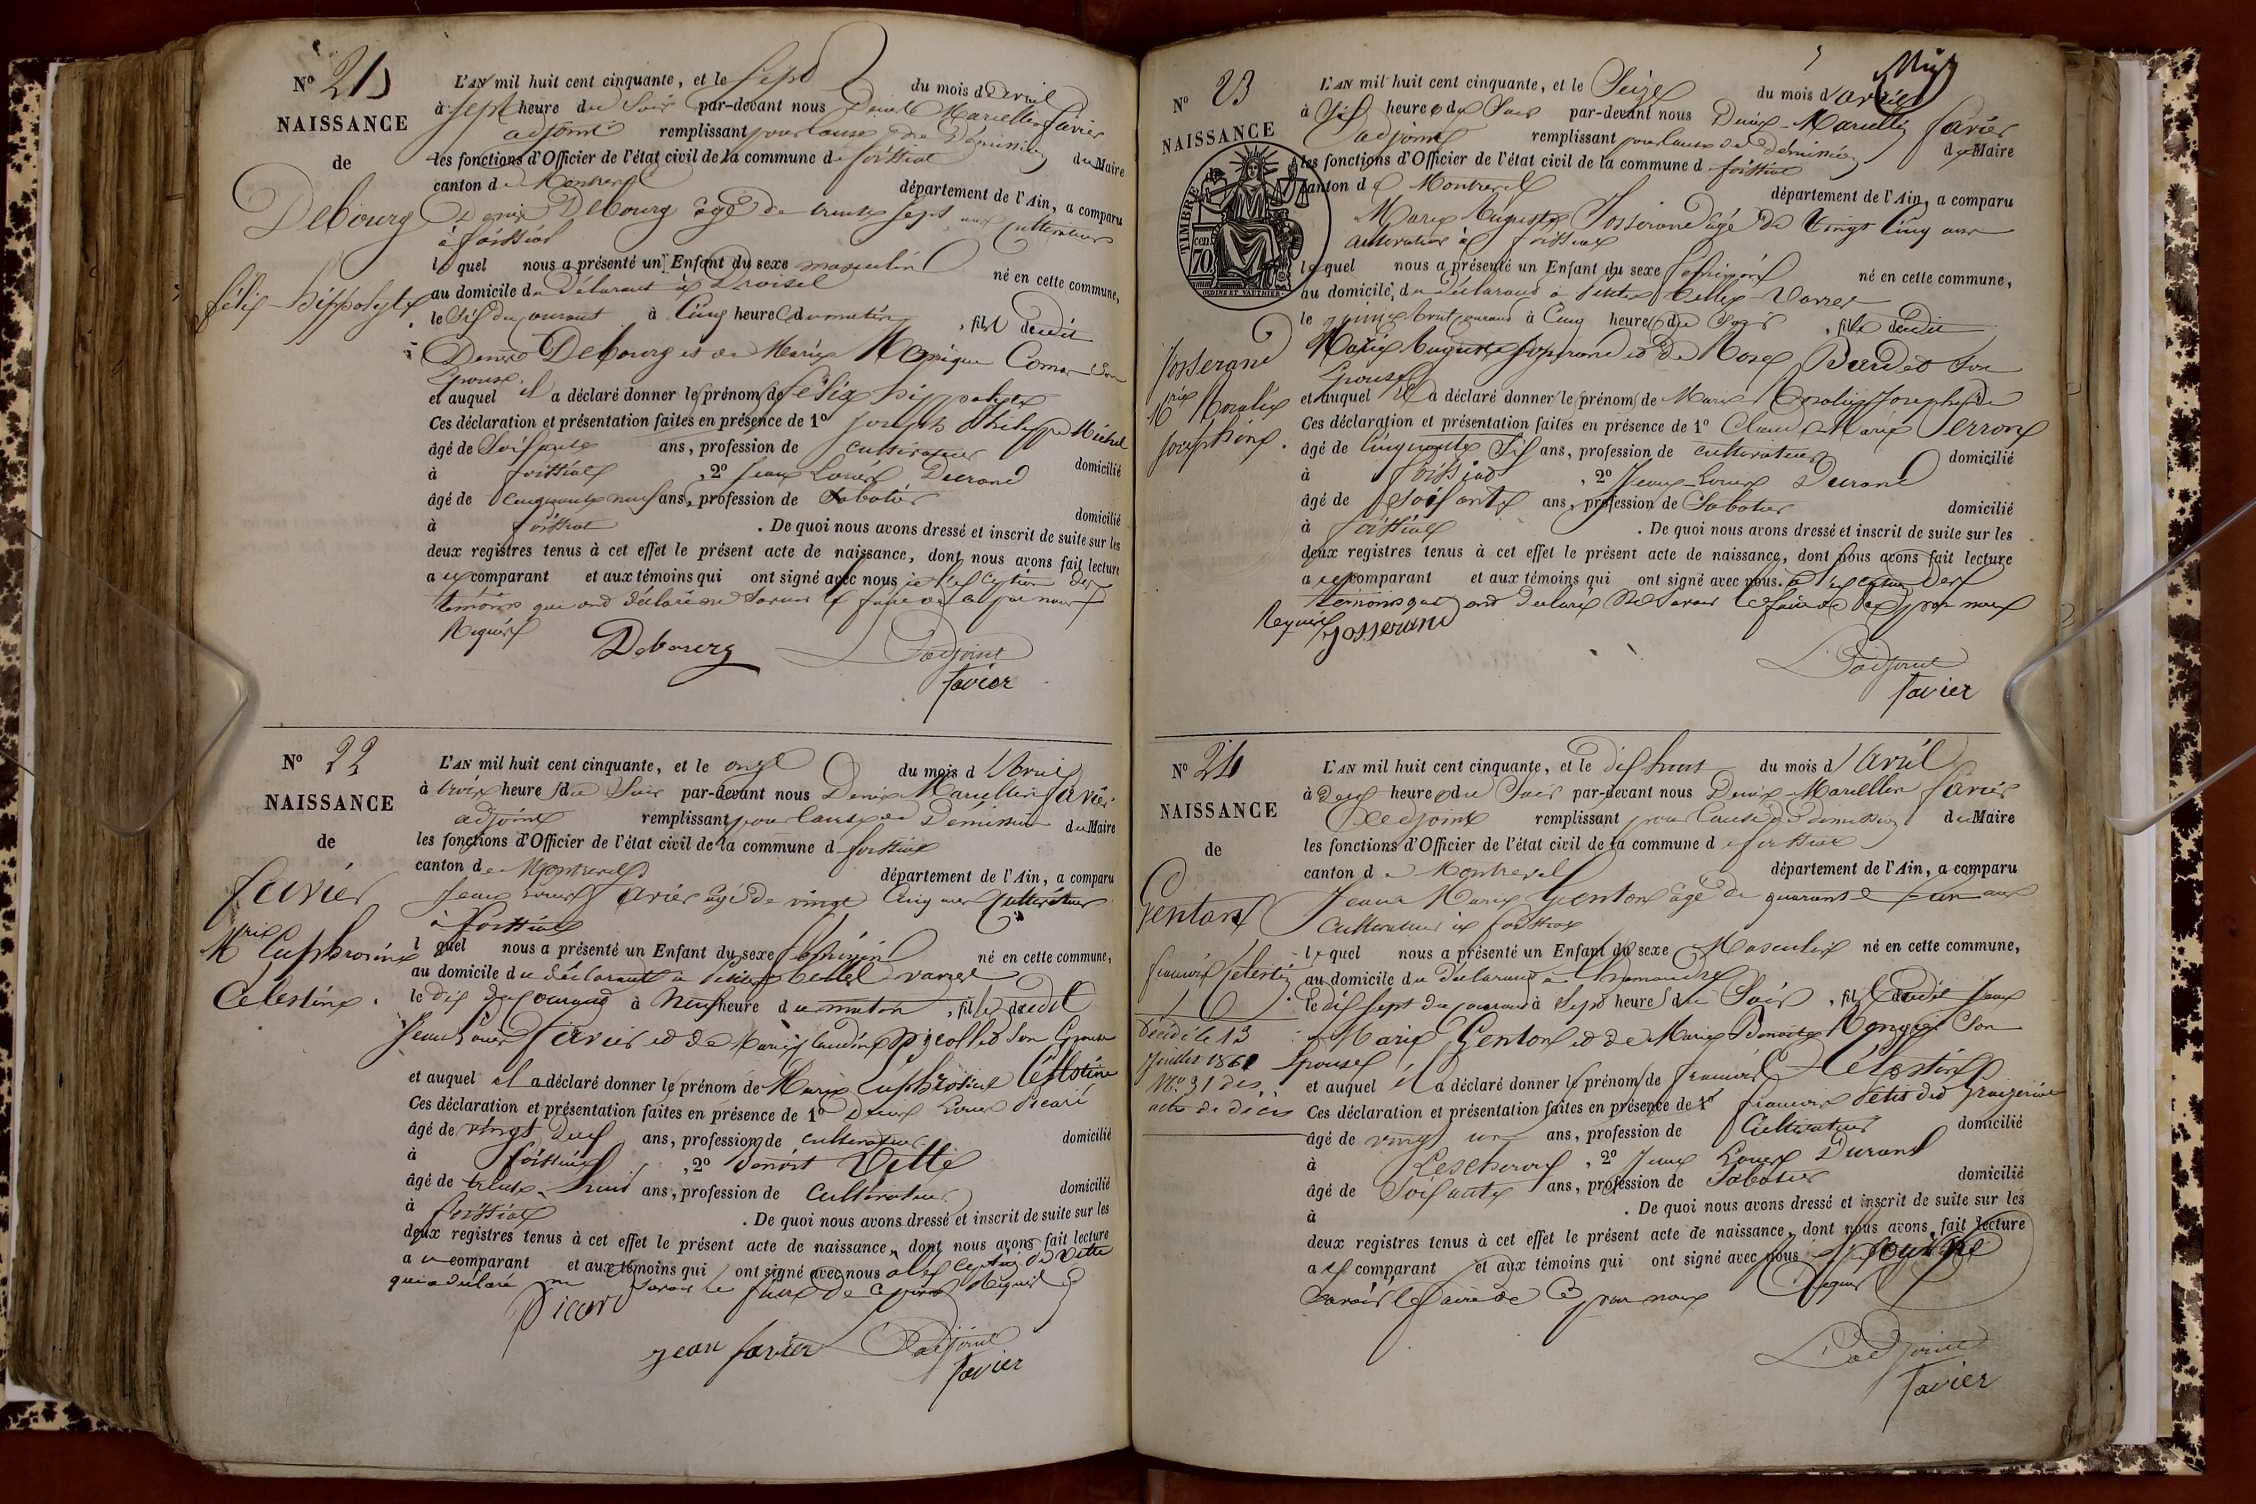 Nº 21
NAISSANCE
de
Debourg
félix hippolyte
L'AN mil huit cent cinquante, et le sept du mois d'avril
à sept heure du Soir par-devant nous Denis Marcellin favier
adjoint remplissant pour cause de Démission
les fonctions d'Officier de l'état civil de la commune de foissiat du Maire
canton de Montrevel département de l'Ain, a comparu
Denis Debourg âgé de trente sept ans Cultivateur
à foissiat
le quel nous a présenté un Enfant du sexe masculin né en cette commune,
au domicile du déclarant à
le Six du courant à Cinq heure du matin, fils dudit
Denis Debourg et de Marie Comas Son
Epouse
et auquel il a déclaré donner les prénom de félix hippolyte
Ces déclaration et présentation faites en présence de 1º joseph philippe Michel
âgé de Soixante ans, profession de cultivateur domicilié
à foissiat, 2º jean Louis Durand
âgé de cinquante neuf ans, profession de Sabotier domicilié
à foissiat. De quoi nous avons dressé et inscrit de suite sur les
deux registres tenus à cet effet le présent acte de naissance, dont nous avons fait lecture
au comparant et aux témoins qui ont signé avec nous à l'exception des
témoins qui ont déclaré ne Savoir le faire de ce par nous
Requis
Debourg L'adjoint
favier
Nº 22
NAISSANCE
de
favier
Mrie Euphrosine
Celestine.
L'AN mil huit cent cinquante, et le onze du mois d'Avril
à trois heures du Soir par-devant nous Denis Marcellin favier
adjoint remplissant pour cause de Démission du Maire
les fonctions d'Officier de l'état civil de la commune de foissiat
canton de Montrevel département de l'Ain, a comparu
Jean Louis favier âgé de vingt Cinq ans Cultivateur
à foissiat
lequel nous a présenté un Enfant du sexe féminin né en cette commune,
au domicile du déclarant à
le dix du courant à Neuf heure du matin, fille dudit
Jean Louis favier et de Marie Claudine picollet Son Epouse
et auquel il a déclaré donner les prénom de Marie Euphrosine Célestine
Ces déclaration et présentation faites en présence de 1º Denis Louis picard
âgé de vingt deux ans, profession de cultivateur domicilié
à foissiat, 2º Benoit Vette
âgé de trente huit ans, profession de Cultivateur domicilié
à foissiat. De quoi nous avons dressé et inscrit de suite sur les
deux registres tenus à cet effet le présent acte de naissance, dont nous avons fait lecture
au comparant et aux témoins qui ont signé avec nous à l'exception de Vette
qui a déclaré ne Savoir le faire de ce par nous Requis
picard
jean favier L'adjoint
favier
Nº 23
NAISSANCE
TIMBRE
cen.
70
OUDINÉ ET VAUTHIER
Josserand
Mrie Rosalie
Joséphine.
L'AN mil huit cent cinquante, et le Seize du mois d'avril
à Six heure du Soir par-devant nous Denis Marcellin favier
adjoint remplissant pour cause de démission du Maire
les fonctions d'Officier de l'état civil de la commune de foissiat
canton de Montrevel département de l'Ain, a comparu
Marie Auguste Josserand âgé de vingt Cinq ans
Cultivateur à foissiat
lequel nous a présenté un Enfant du sexe féminin né en cette commune,
au domicile, du déclarant à
le quinze courant à Cinq heure du Soir, fille dudit
Marie Auguste josserand et de Rose Burdet Son
Epouse
et auquel il a déclaré donner les prénom de Marie Rosalie Josephine
Ces déclaration et présentation faites en présence de 1º Claude Marie Perron
âgé de Cinquante Six ans, profession de cultivateur domicilié
à foissiat, 2º Jean Louis Durand
âgé de Soixante ans, profession de Sabotier domicilié
à foissiat. De quoi nous avons dressé et inscrit de suite sur les
deux registres tenus à cet effet le présent acte de naissance, dont nous avons fait lecture
au comparant et aux témoins qui ont signé avec nous. à l'exception des
témoins qui ont déclaré ne Savoir le faire de ce par nous
Requis josserand
L'adjoint
favier
Nº 24
NAISSANCE
de
Genton
francois Celestin
Décédé le 13
Juillet 1861
Nº 31 des
actes de décès
L'AN mil huit cent cinquante, et le dix huit du mois d'Avril
à deux heure du Soir par-devant nous Denis Marcellin favier
adjoint remplissant pour cause de démission du Maire
les fonctions d'Officier de l'état civil de la commune de foissiat
canton de Montrevel département de l'Ain, a comparu
Jean Marie Genton âgé de quarante un ans
Cultivateur à foissiat
lequel nous a présenté un Enfant du sexe Masculin né en cette commune,
au domicile du déclarant à
le dix Sept du courant à Sept heure du Soir, fils dudit Jean
Marie Genton et de Marie Benoite Son
Epouse
et auquel il a déclaré donner les prénom de francois Célestin
Ces déclaration et présentation faites en présence de 1º francois
âgé de vingt un ans, profession de Cultivateur domicilié
à Lescheroux, 2º Jean Louis Durand
âgé de Soixante ans, profession de Sabotier domicilié
à. De quoi nous avons dressé et inscrit de suite sur les
deux registres tenus à cet effet le présent acte de naissance, dont nous avons fait lecture
au comparant et aux témoins qui ont signé avec nous
Savoir le faire de ce par nous Requis
L'adjoint
favier